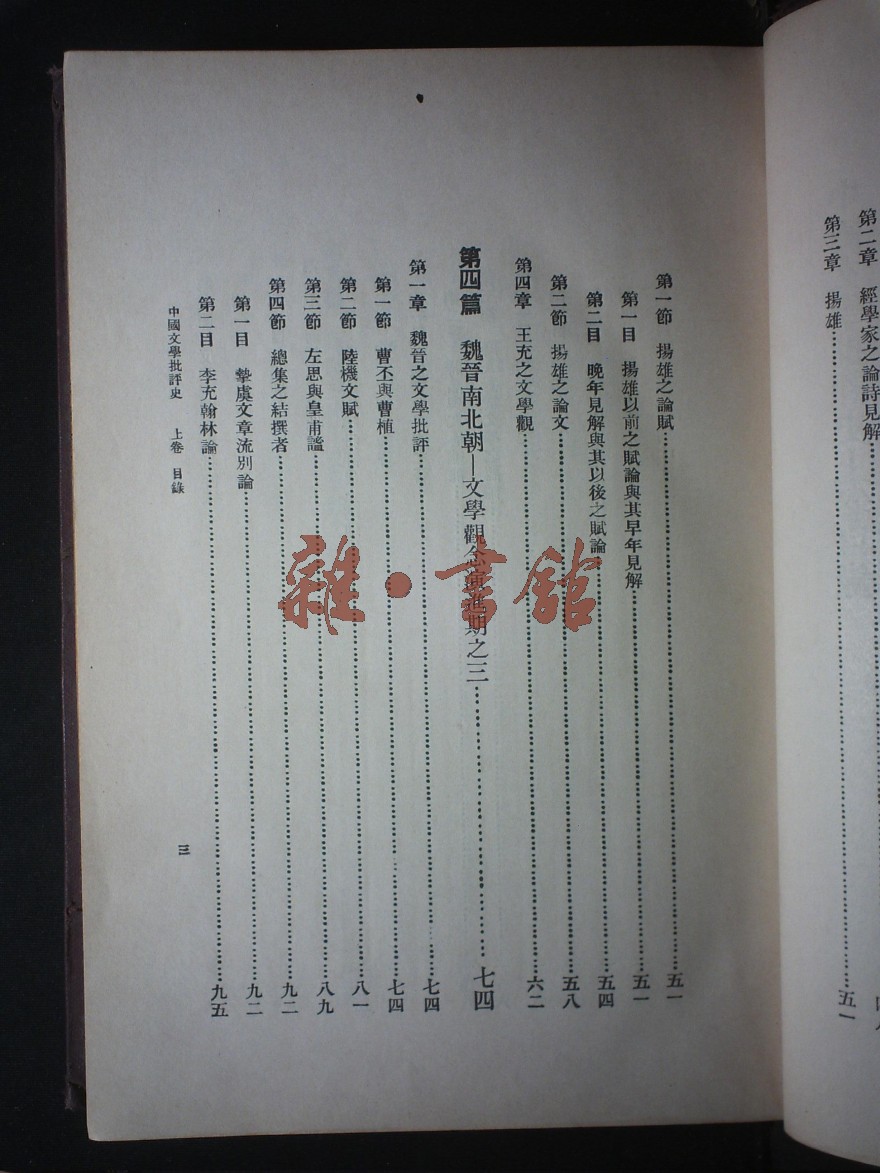 第二章 經學家之論詩見解
第三章 揚雄……五一
第一節 揚雄之論賦……五一
第一目 揚雄以前之賦論與其早年見解……五一
第二目 晚年見解與其以後之賦論……五四
第二節 揚雄之論文……五八
第四章 王充之文學觀……六二
第四篇 魏晉南北朝—文學觀念演進期之三……七四
第一章 魏晉之文學批評……七四
第一節 曹丕與曹植……七四
第二節 陸機文賦……八一
第三節 左思與皇甫謐……八九
第四節 總集之結撰者……九二
第一目 摯虞文章流別論……九二
第二目 李充翰林論……九五
中國文學批評史 上卷 目錄
三
雜·書館